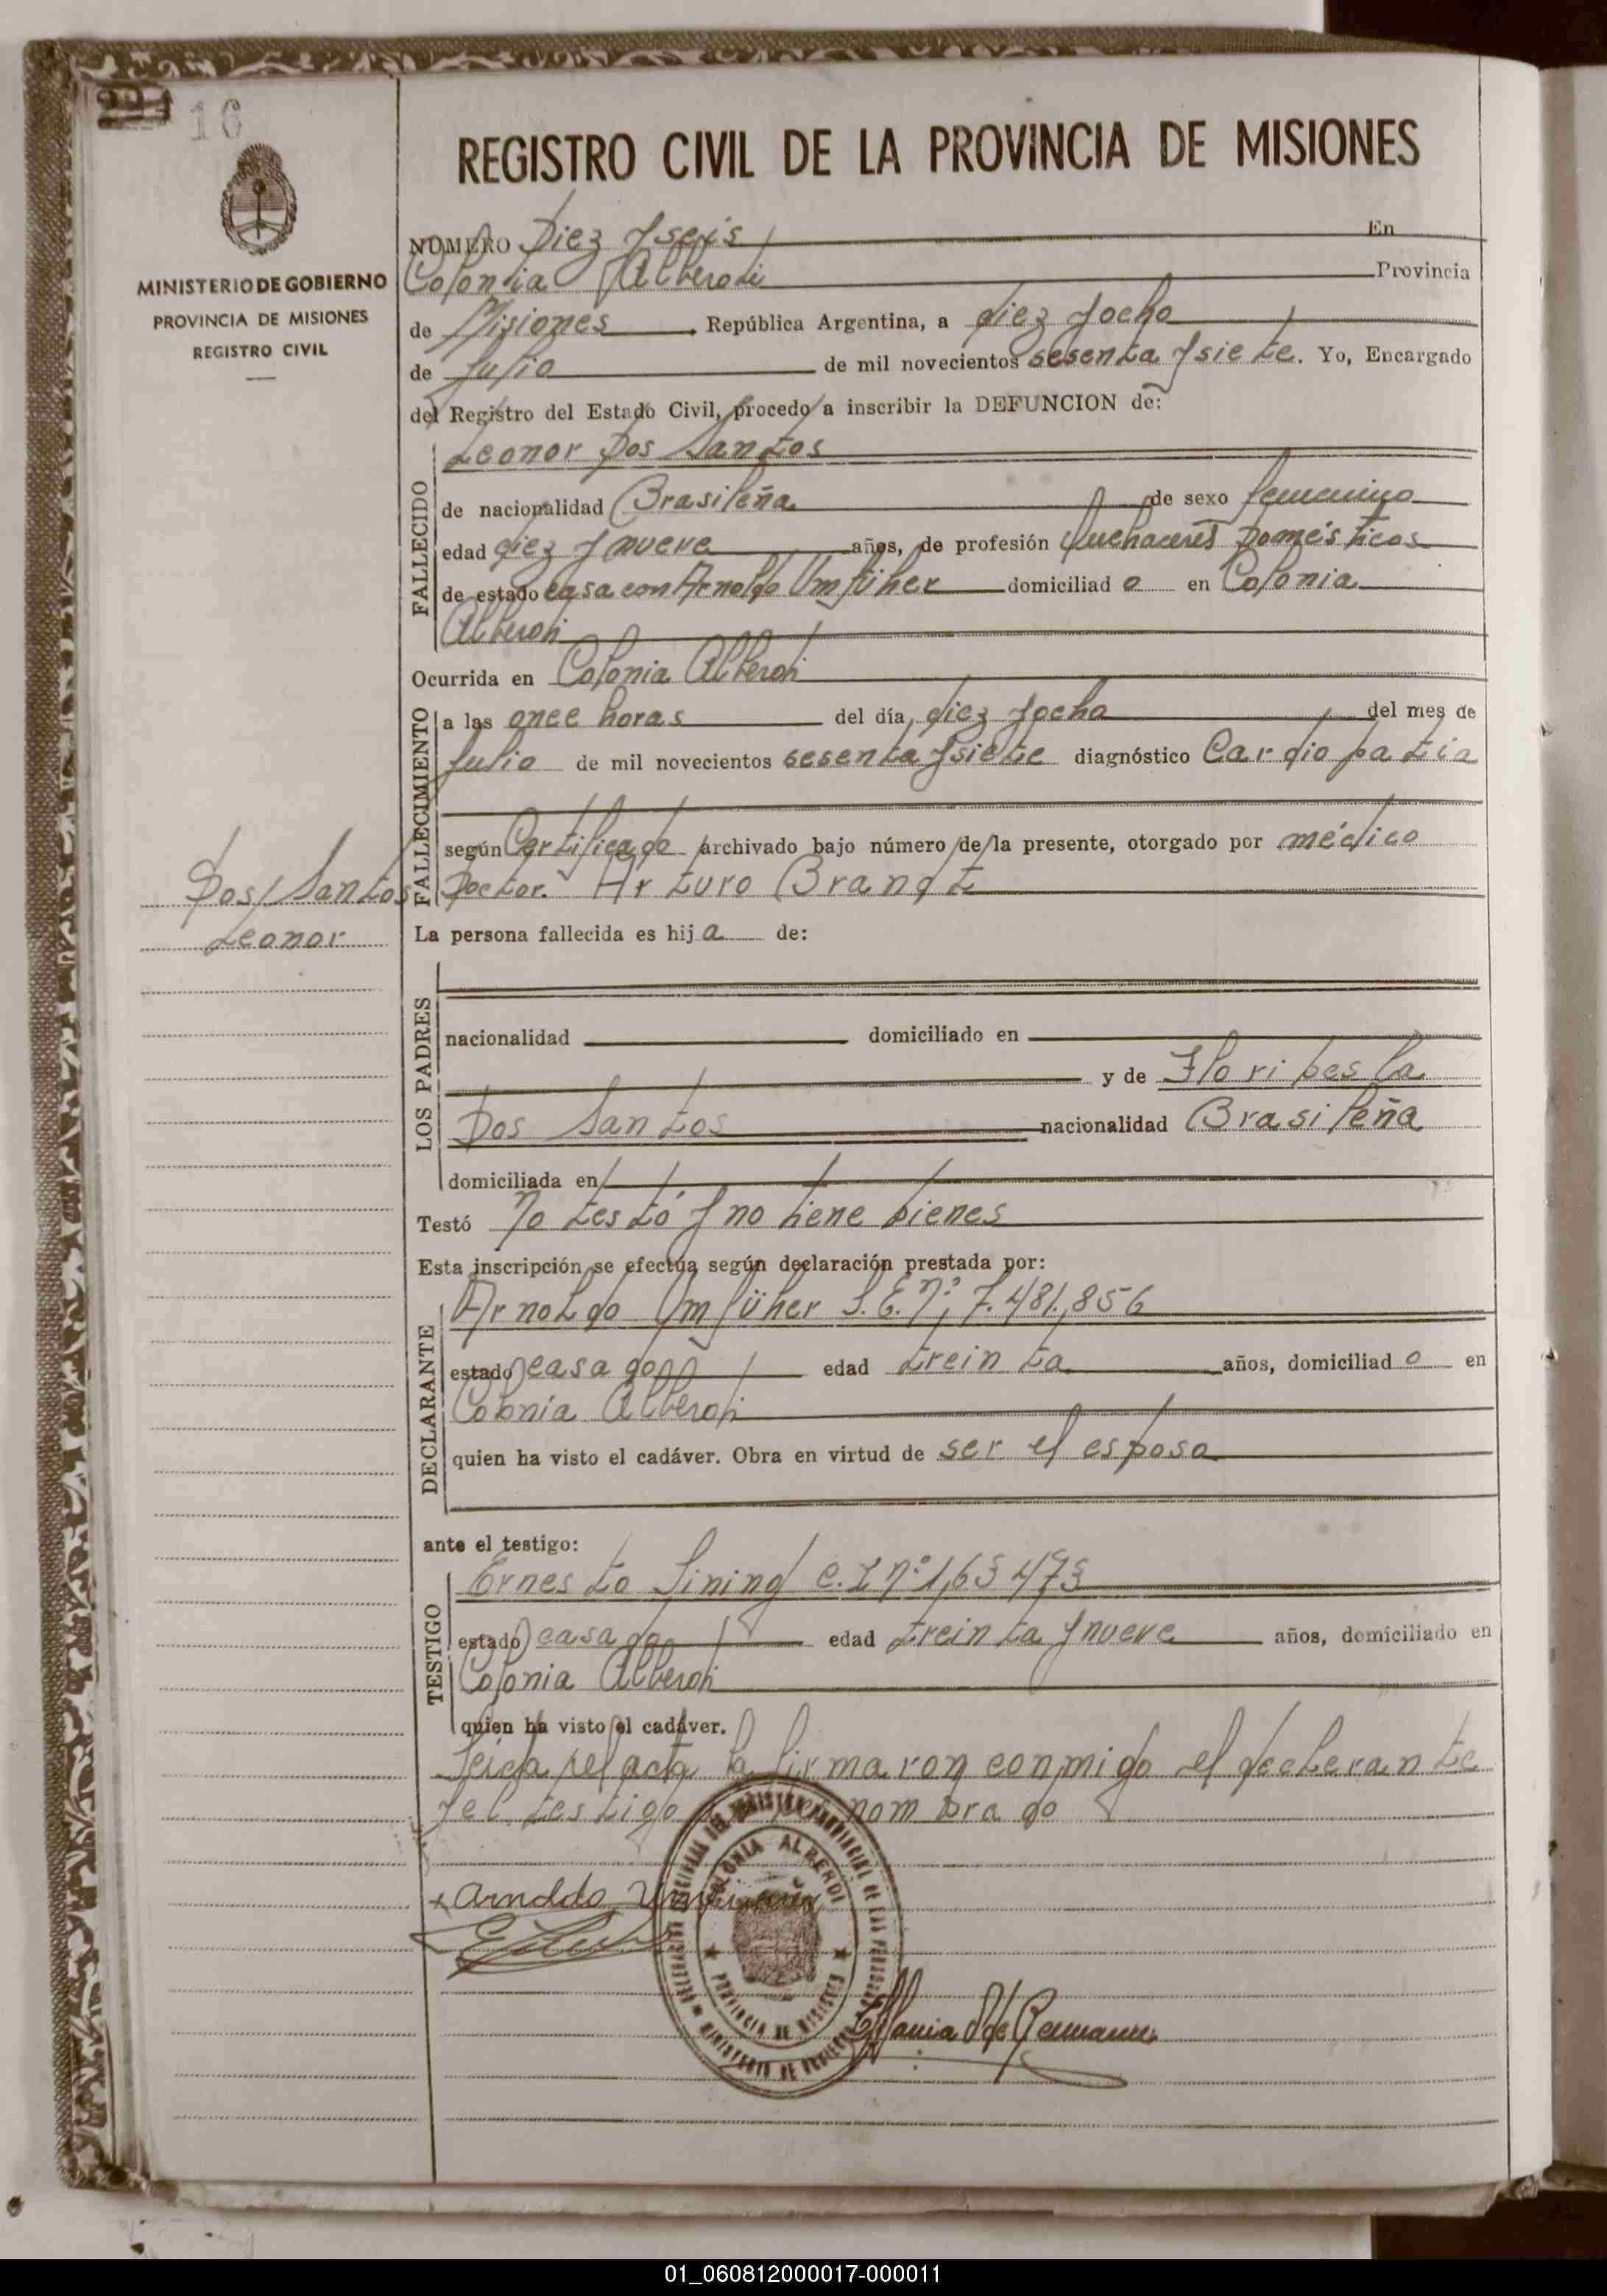 16
MINISTERIO DE GOBIERNO
PROVINCIA DE MISIONES
REGISTRO CIVIL
REGISTRO CIVIL DE LA PROVINCIA DE MISIONES
NUMERO Diez y seis En
Colonia Alberdi Provincia
de Misiones República Argentina, a diez y ocho
de Julio de mil novecientos sesenta y siete. Yo, Encargado
del Registro del Estado Civil, procedo a inscribir la DEFUNCION de:
FALLECIDO
Leonor Dos Santos
de nacionalidad Brasileña de sexo femenino
edad diez y nueve años, de profesión Quehaceres Domésticos
de estado casa con Arnoldo Umfüher domiciliad o en Colonia
Alberdi
Ocurrida en Colonia Alberdi
FALLECIMIENTO
a las once horas del día, diez y ocho del mes de
Julio de mil novecientos sesenta y siete diagnóstico Cardiopatia
según Certificado archivado bajo número de la presente, otorgado por médico
Doctor. Arturo Brandt
Dos Santos
Leonor
La persona fallecida es hij a de:
LOS PADRES
nacionalidad domiciliado en
y de Floripes la
Dos Santos nacionalidad Brasileña
domiciliada en
Testó No testó y no tiene bienes
Esta inscripción se efectúa según declaración prestada por:
DECLARANTE
Arnoldo Umfüher L.E. Nº; 7.481,856
estado casado edad treinta años, domiciliad o en
Colonia Alberdi
quien ha visto el cadáver. Obra en virtud de ser el esposo
ante el testigo:
TESTIGO
Ernesto Lining C.I nº 1,63 473
estado casado edad treinta y nueve años, domiciliado en
Colonia Alberdi
quien ha visto el cadáver.
Leida el acta la firmaron conmigo el declerante
y el testigo nombrado
COLONIA ALBERDI
PROVINCIA DE MISIONES
MINISTERIO DE GOBIERNO
Arnoldo
01_060812000017-000011